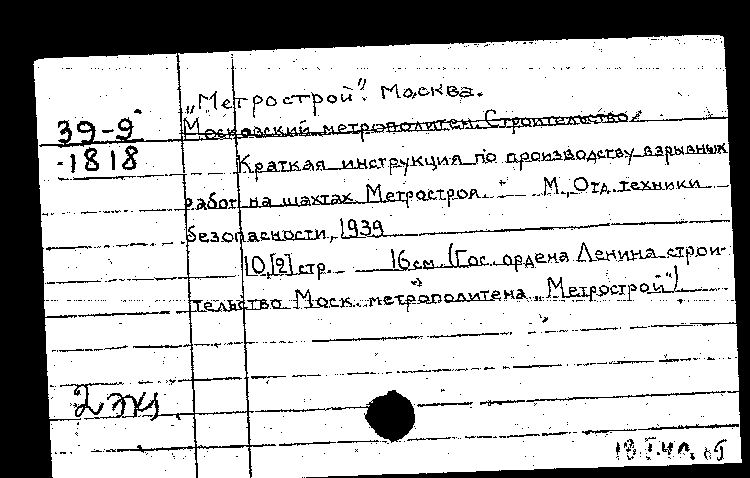 „Метрострой“. Москва.
39-9
Московский метрополитен. Строительство.
-1818
Краткая инструкция по производству взрывных
работ на шахтах Метростроя. М., Отд. техники
безопасности, 1939
10,[2] стр. 16 см. (Гос. ордена Ленина строи-
тельство Моск. метрополитена „Метрострой“).
2 экз.